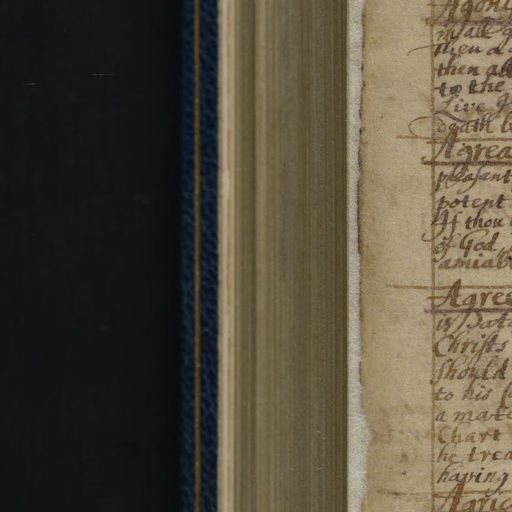 Agoni
in all
then a
then all
to the
Live
death b
Agrea
pleasant
potent
If thou
of God
amiab
Agree
is Sata
Christs
should
to his
a mat
Chart
he trea
having
Agrie